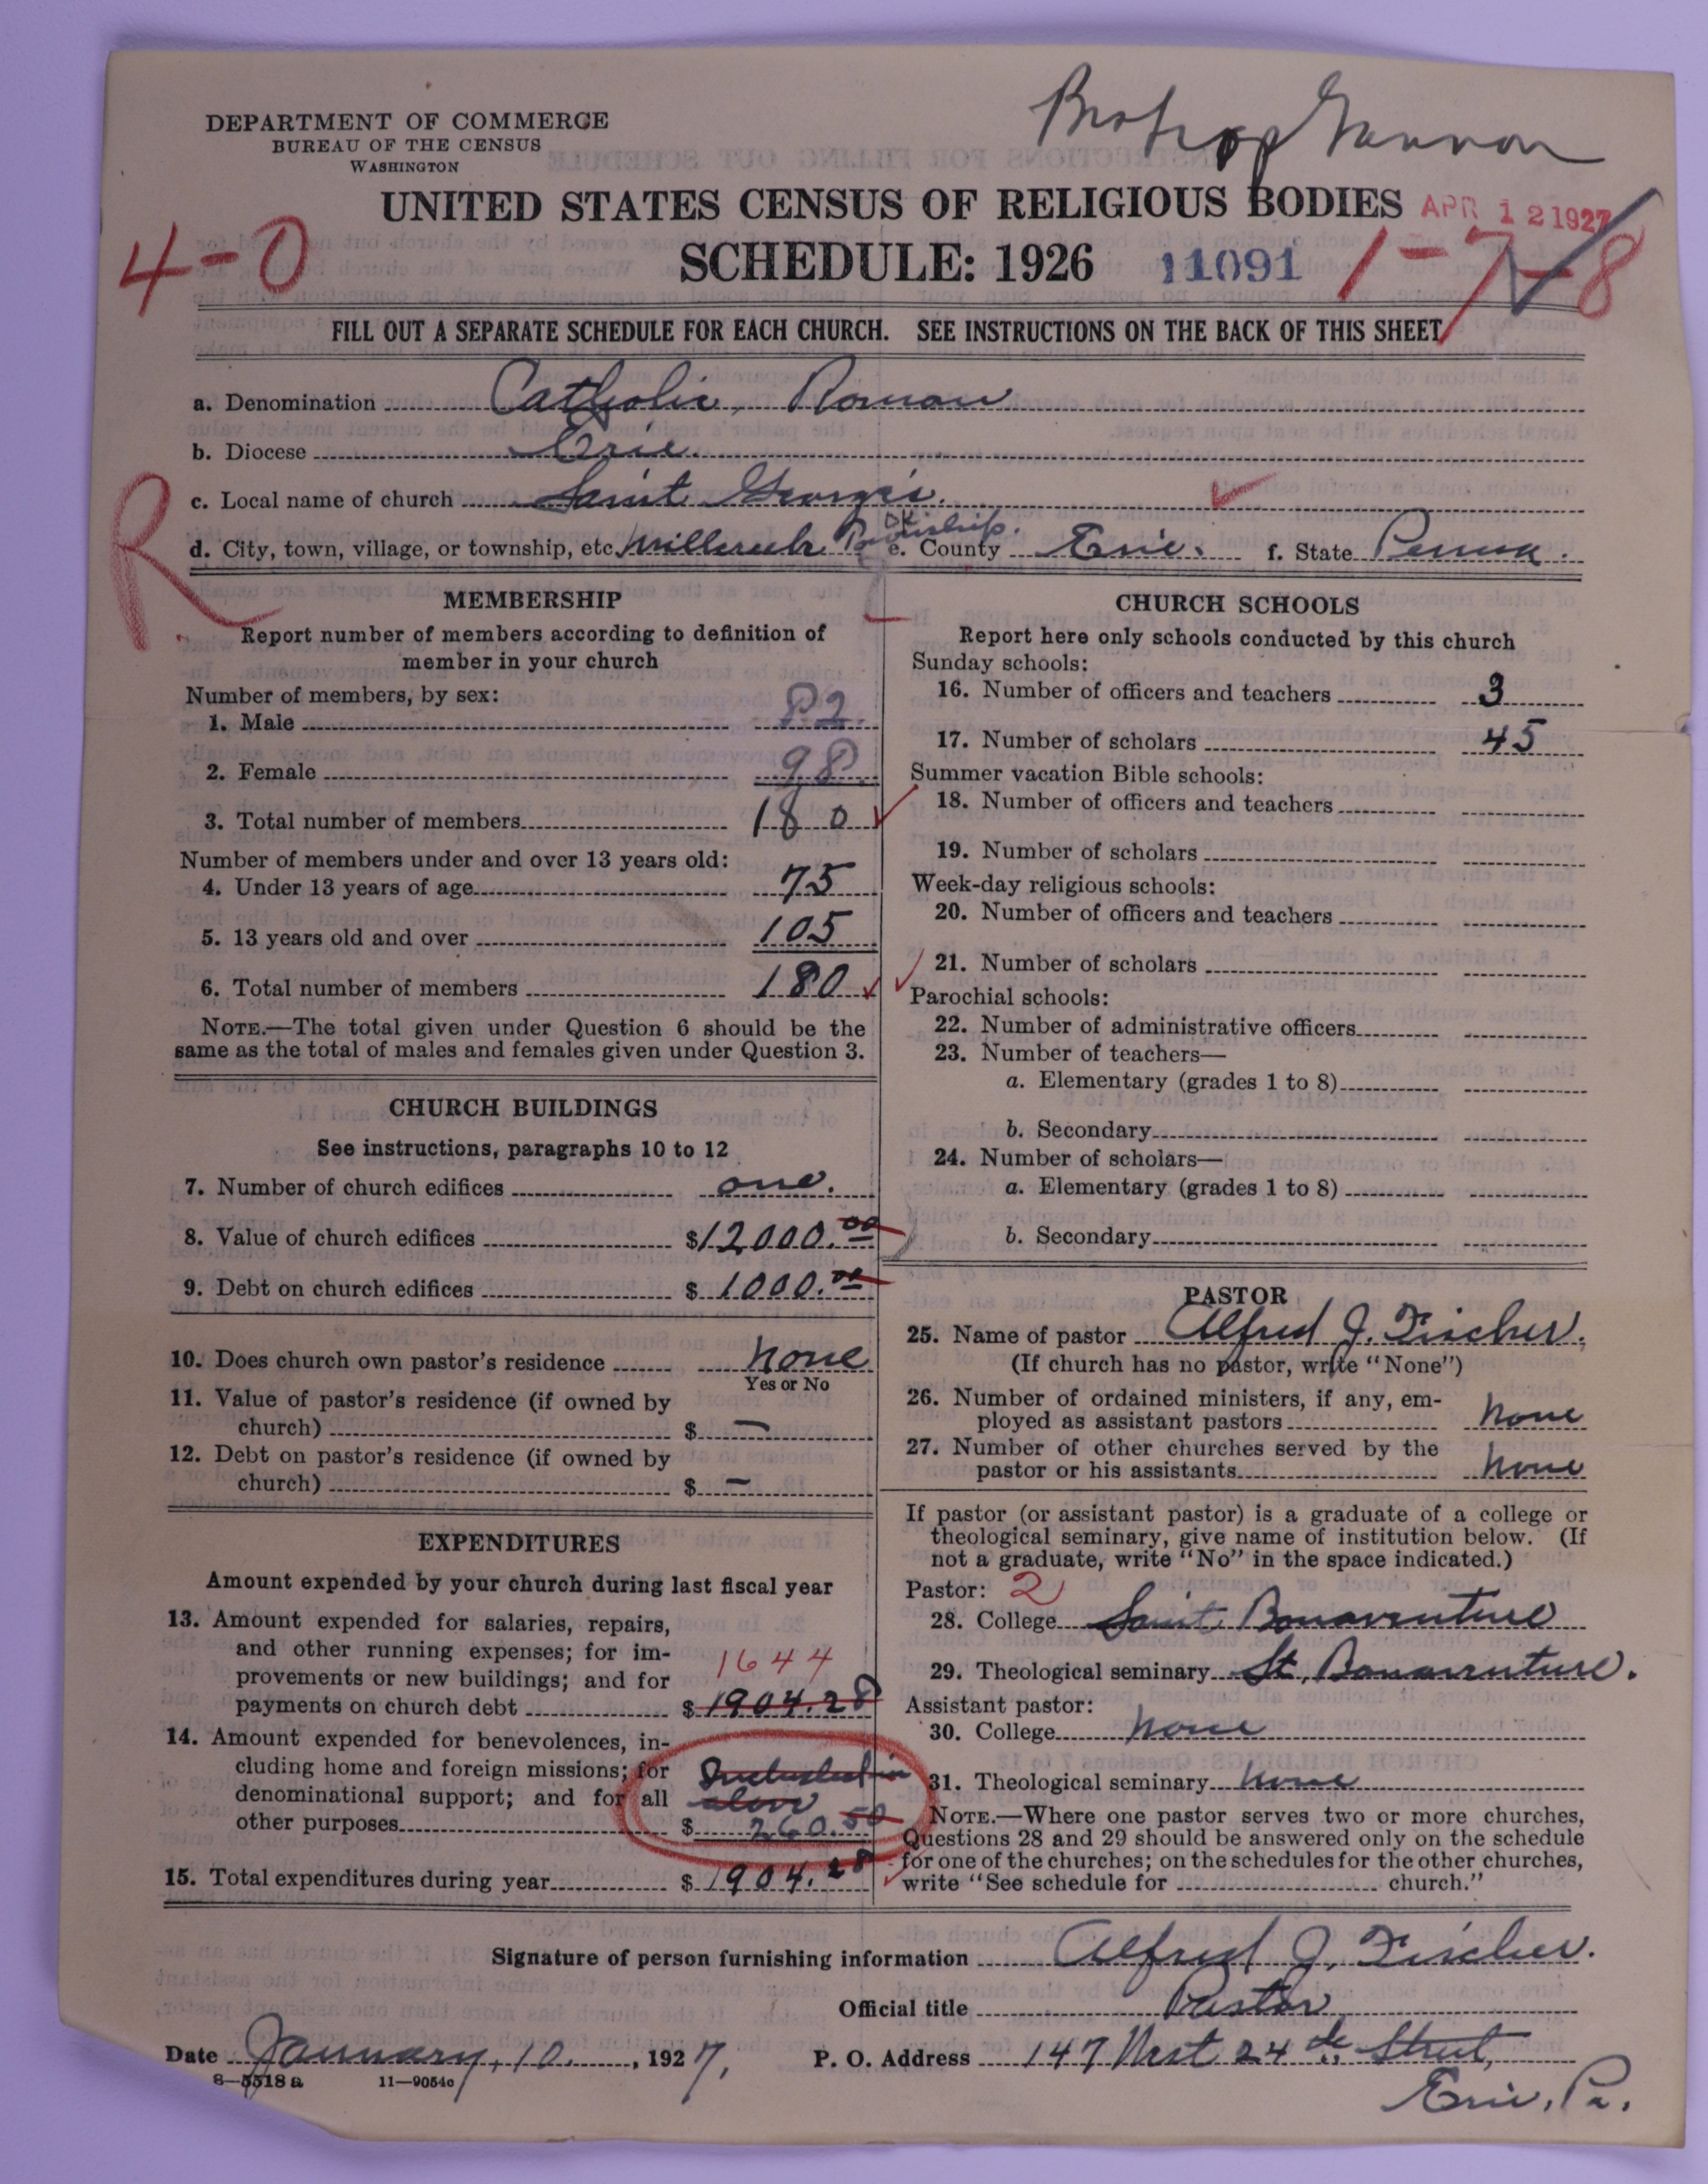 Bishop Gannon
DEPARTMENT OF COMMERCE
BUREAU OF THE CENSUS
WASHINGTON
UNITED STATES CENSUS OF RELIGIOUS BODIES
APR 12 1927
4-0
SCHEDULE: 1926
11091
1-7-8
FILL OUT A SEPARATE SCHEDULE FOR EACH CHURCH. SEE INSTRUCTIONS ON THE BACK OF THIS SHEET
a. Denomination Catholic, Roman
b. Diocese Erie.
R
c. Local name of church Saint George's.
OK
d. City, town, village, or township, etc. Millcreek Township. e. County Erie. f. State Penna.
MEMBERSHIP
Report number of members according to definition of
member in your church
Number of members, by sex:
1. Male 82
2. Female 98
3. Total number of members 180
Number of members under and over 13 years old:
4. Under 13 years of age 75
5. 13 years old and over 105
6. Total number of members 180
NOTE.—The total given under Question 6 should be the
same as the total of males and females given under Question 3.
CHURCH BUILDINGS
See instructions, paragraphs 10 to 12
7. Number of church edifices one.
8. Value of church edifices $12000.00
9. Debt on church edifices $1000.00
10. Does church own pastor's residence none
Yes or No
11. Value of pastor's residence (if owned by
church) $ —
12. Debt on pastor's residence (if owned by
church) $ —
EXPENDITURES
Amount expended by your church during last fiscal year
13. Amount expended for salaries, repairs,
and other running expenses; for im-
provements or new buildings; and for
1644
payments on church debt $1904.28
14. Amount expended for benevolences, in-
cluding home and foreign missions; for Included in
denominational support; and for all above
other purposes $260.50
15. Total expenditures during year $1904.28
CHURCH SCHOOLS
Report here only schools conducted by this church
Sunday schools:
16. Number of officers and teachers 3
17. Number of scholars 45
Summer vacation Bible schools:
18. Number of officers and teachers
19. Number of scholars
Week-day religious schools:
20. Number of officers and teachers
21. Number of scholars
Parochial schools:
22. Number of administrative officers
23. Number of teachers—
a. Elementary (grades 1 to 8)
b. Secondary
24. Number of scholars—
a. Elementary (grades 1 to 8)
b. Secondary
PASTOR
25. Name of pastor Alfred J. Fischer.
(If church has no pastor, write "None")
26. Number of ordained ministers, if any, em-
ployed as assistant pastors none
27. Number of other churches served by the
pastor or his assistants none
If pastor (or assistant pastor) is a graduate of a college or
theological seminary, give name of institution below. (If
not a graduate, write "No" in the space indicated.)
Pastor: 2
28. College Saint Bonaventure
29. Theological seminary St. Bonaventure.
Assistant pastor:
30. College none
31. Theological seminary none
NOTE.—Where one pastor serves two or more churches,
Questions 28 and 29 should be answered only on the schedule
for one of the churches; on the schedules for the other churches,
write "See schedule for church."
Signature of person furnishing information Alfred J. Fischer.
Official title Pastor
Date January, 10, 1927. P. O. Address 147 West 24th Street,
8—5518 a 11—9054c
Erie, Pa.